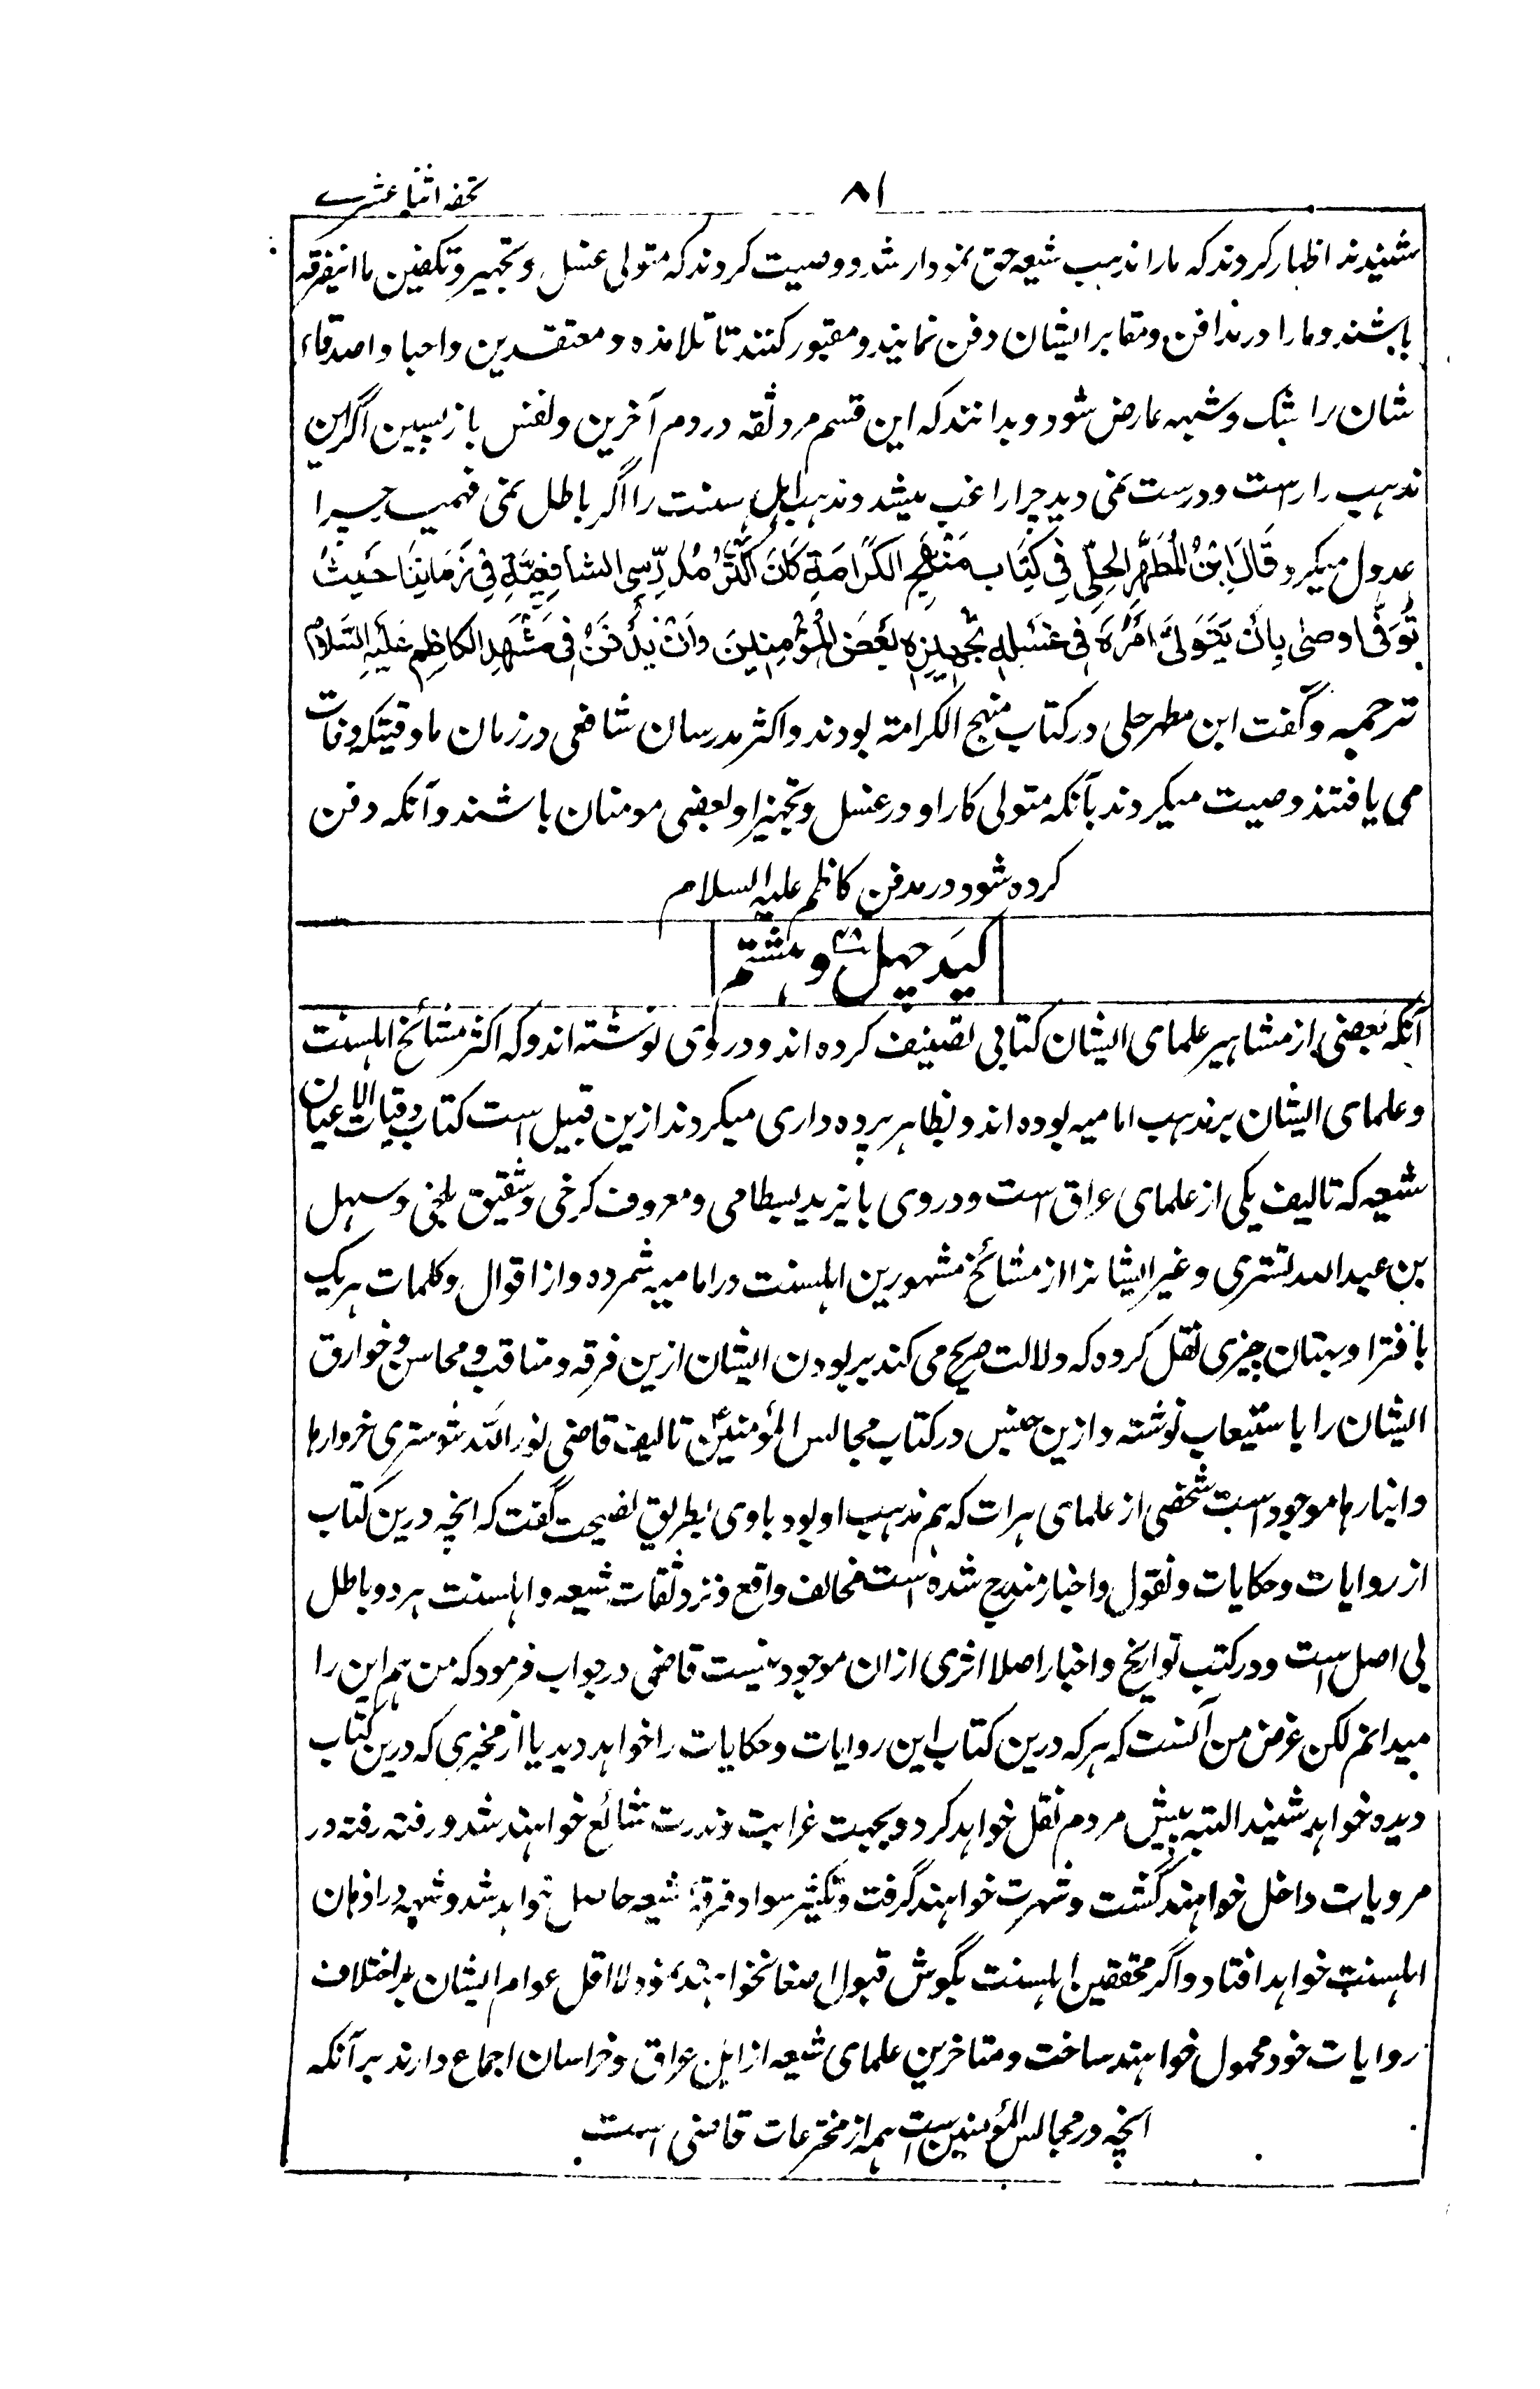 ٨١
تحفه اثنا عشری
شنیدند اظهار کردند که مارا مذهب شیعه حق نمودار شد و وصیت کردند که متولی غسل و تجهیز و تکفین ما اینفرقه
باشند و مارا در مدافن و مقابر ایشان دفن نمایند و مقبور کنند تا تلامذه و معتقدین و احبا و اصدقاء
شان را شک و شبهه عارض شود و بدانند که این قسم مرد ثقه در دم آخرین و نفس بازپسین اگر این
مذهب را راست و درست نمی دید چرا راغب میشد و مذهب اهل سنت را اگر باطل نمی فهمید چرا
عدول میکرد قَالَ ابْنُ الْمُطَهَّرِ الحِلِّی فِی کِتَاب مَنْهَجِ الکَرَامَةِ کَانَ اَکْثَرُ مُدَرِّسِی الشافِعِیَّةِ فِی زَمَانِنَا حَیثُ
تُوَفّٰی اوصیٰ بِاَن یَتَوَلَّی اَمْرَهُ فِی غَسْلِهٖ وتجهِیزِهٖ بَعْضُ الْمُؤْمِنِینَ وَاَنْ یُدْفَنَ فِی مَشْهَدِ الکاظِمِ عَلَیهِ السَّلَامُ
ترجمه و گفت ابن مطهر حلی در کتاب منهج الکرامة بودند و اکثر مدرسان شافعی در زمان ما وقتیکه وفات
می یافتند وصیت میکردند بآنکه متولی کار او در غسل و تجهیز او بعضی مومنان باشند و آنکه دفن
کرده شود در مدفن کاظم علیه السلام
کَید چهل و هشتم ۴۸
آنکه بعضی از مشاهیر علمای ایشان کتابی تصنیف کرده اند و در وی نوشته اند و که اکثر مشائخ اهلسنت
و علمای ایشان بر مذهب امامیه بوده اند و بظاهر پرده داری میکردند ازین قبیل است کتاب وفیات الاعیان
شیعه که تالیف یکی از علمای عراق است و در وی بایزید بسطامی و معروف کرخی و شقیق بلخی و سهل
بن عبد الله تستری و غیر ایشانرا از مشائخ مشهورین اهلسنت در امامیه شمرده و از اقوال و کلمات هریک
بافترا و بهتان چیزی نقل کرده که دلالت صریح می کند بر بودن ایشان ازین فرقه و مناقب و محاسن و خوارق
ایشان را باستیعاب نوشته و ازین جنس در کتاب مجالس المؤمنین تالیف قاضی نور الله شوستری خروارها
و انبارها موجود است شخصی از علمای هرات که هم مذهب او بود با وی بطریق نصیحت گفت که انچه درین کتاب
از روایات و حکایات و نقول و اخبار مندرج شده است مخالف واقع و نزد ثقات شیعه و اهلسنت هردو باطل
بی اصل است و در کتب تواریخ و اخبار اصلا اثری ازان موجود نیست قاضی در جواب فرمود که من هم این را
میدانم لکن غرض من آنست که هر که درین کتاب این روایات و حکایات را خواهد دید یا از مخبری که درین کتاب
دیده خواهد شنید البته پیش مردم نقل خواهد کرد و بجهت غرابت و ندرت شائع خواهند شد و رفته رفته در
مرویات داخل خواهند گشت و شهرت خواهند گرفت و تکثیر سواد فرقهٔ شیعه حاصل خواهد شد و شبهه در اذهان
اهلسنت خواهد افتاد و اگر محققین اهلسنت بگوش قبول اصغا نخواهند نمود لا اقل عوام ایشان بر اختلاف
روایات خود محمول خواهند ساخت و متاخرین علمای شیعه از اهل عراق و خراسان اجماع دارند بر آنکه
انچه در مجالس المؤمنین است همه از مخترعات قاضی است